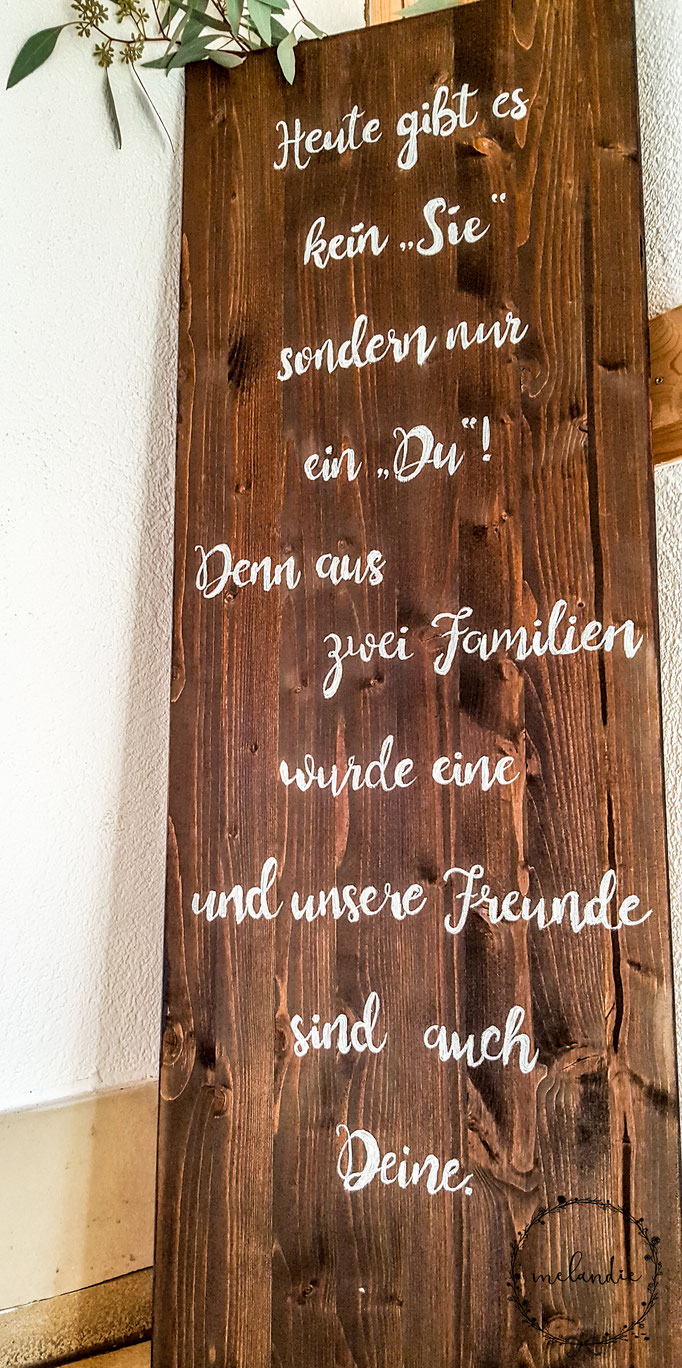 Heute gibt es
kein „Sie“
sondern nur
ein „Du“!
Denn aus
zwei Familien
wurde eine
und unsere Freunde
sind auch
Deine.
melandie